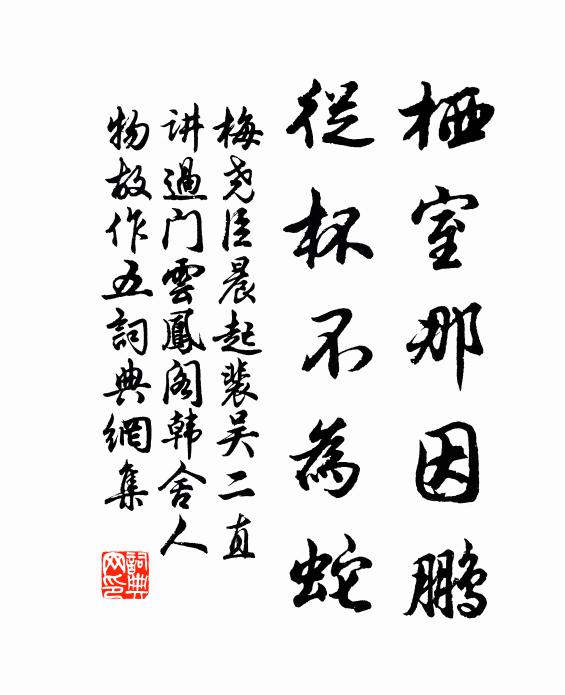 栖室那因鵬
從杯不為蛇
梅尧臣晨起裴吴二直
讲過门雲鳳阁韩舍人
物故作五詞典網集
詞典网印